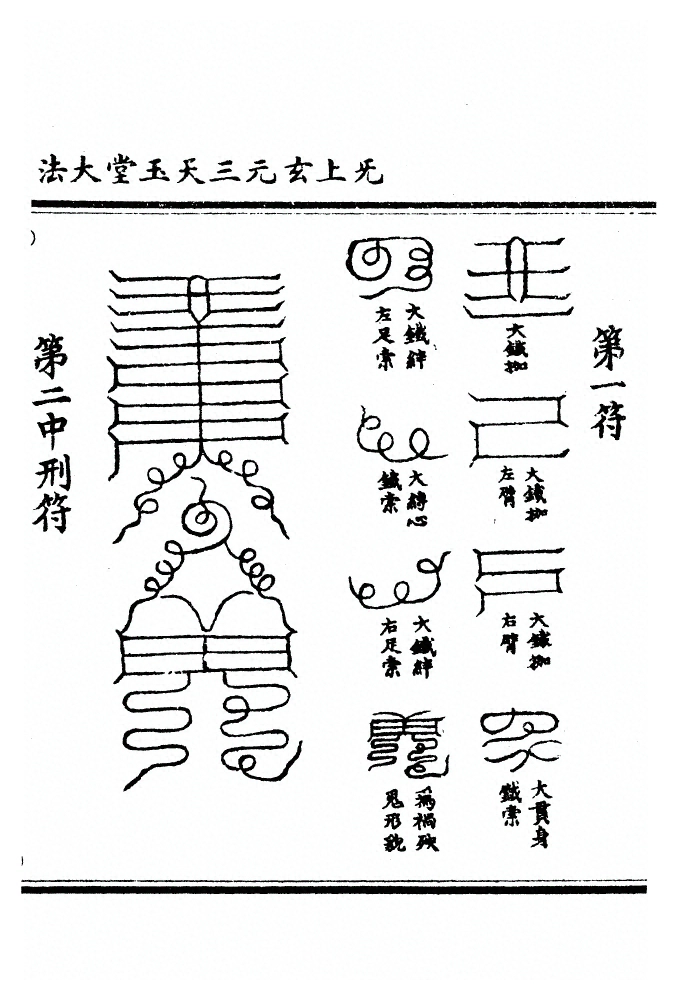 旡上玄元三天玉堂大法
第一符
大鐵枷
大鐵枷
左臂
大鐵枷
右臂
大貫身
鐵索
大鐵絆
左足索
大縛心
鐵索
大鐵絆
右足索
為禍殃
鬼形貌
第二中刑符